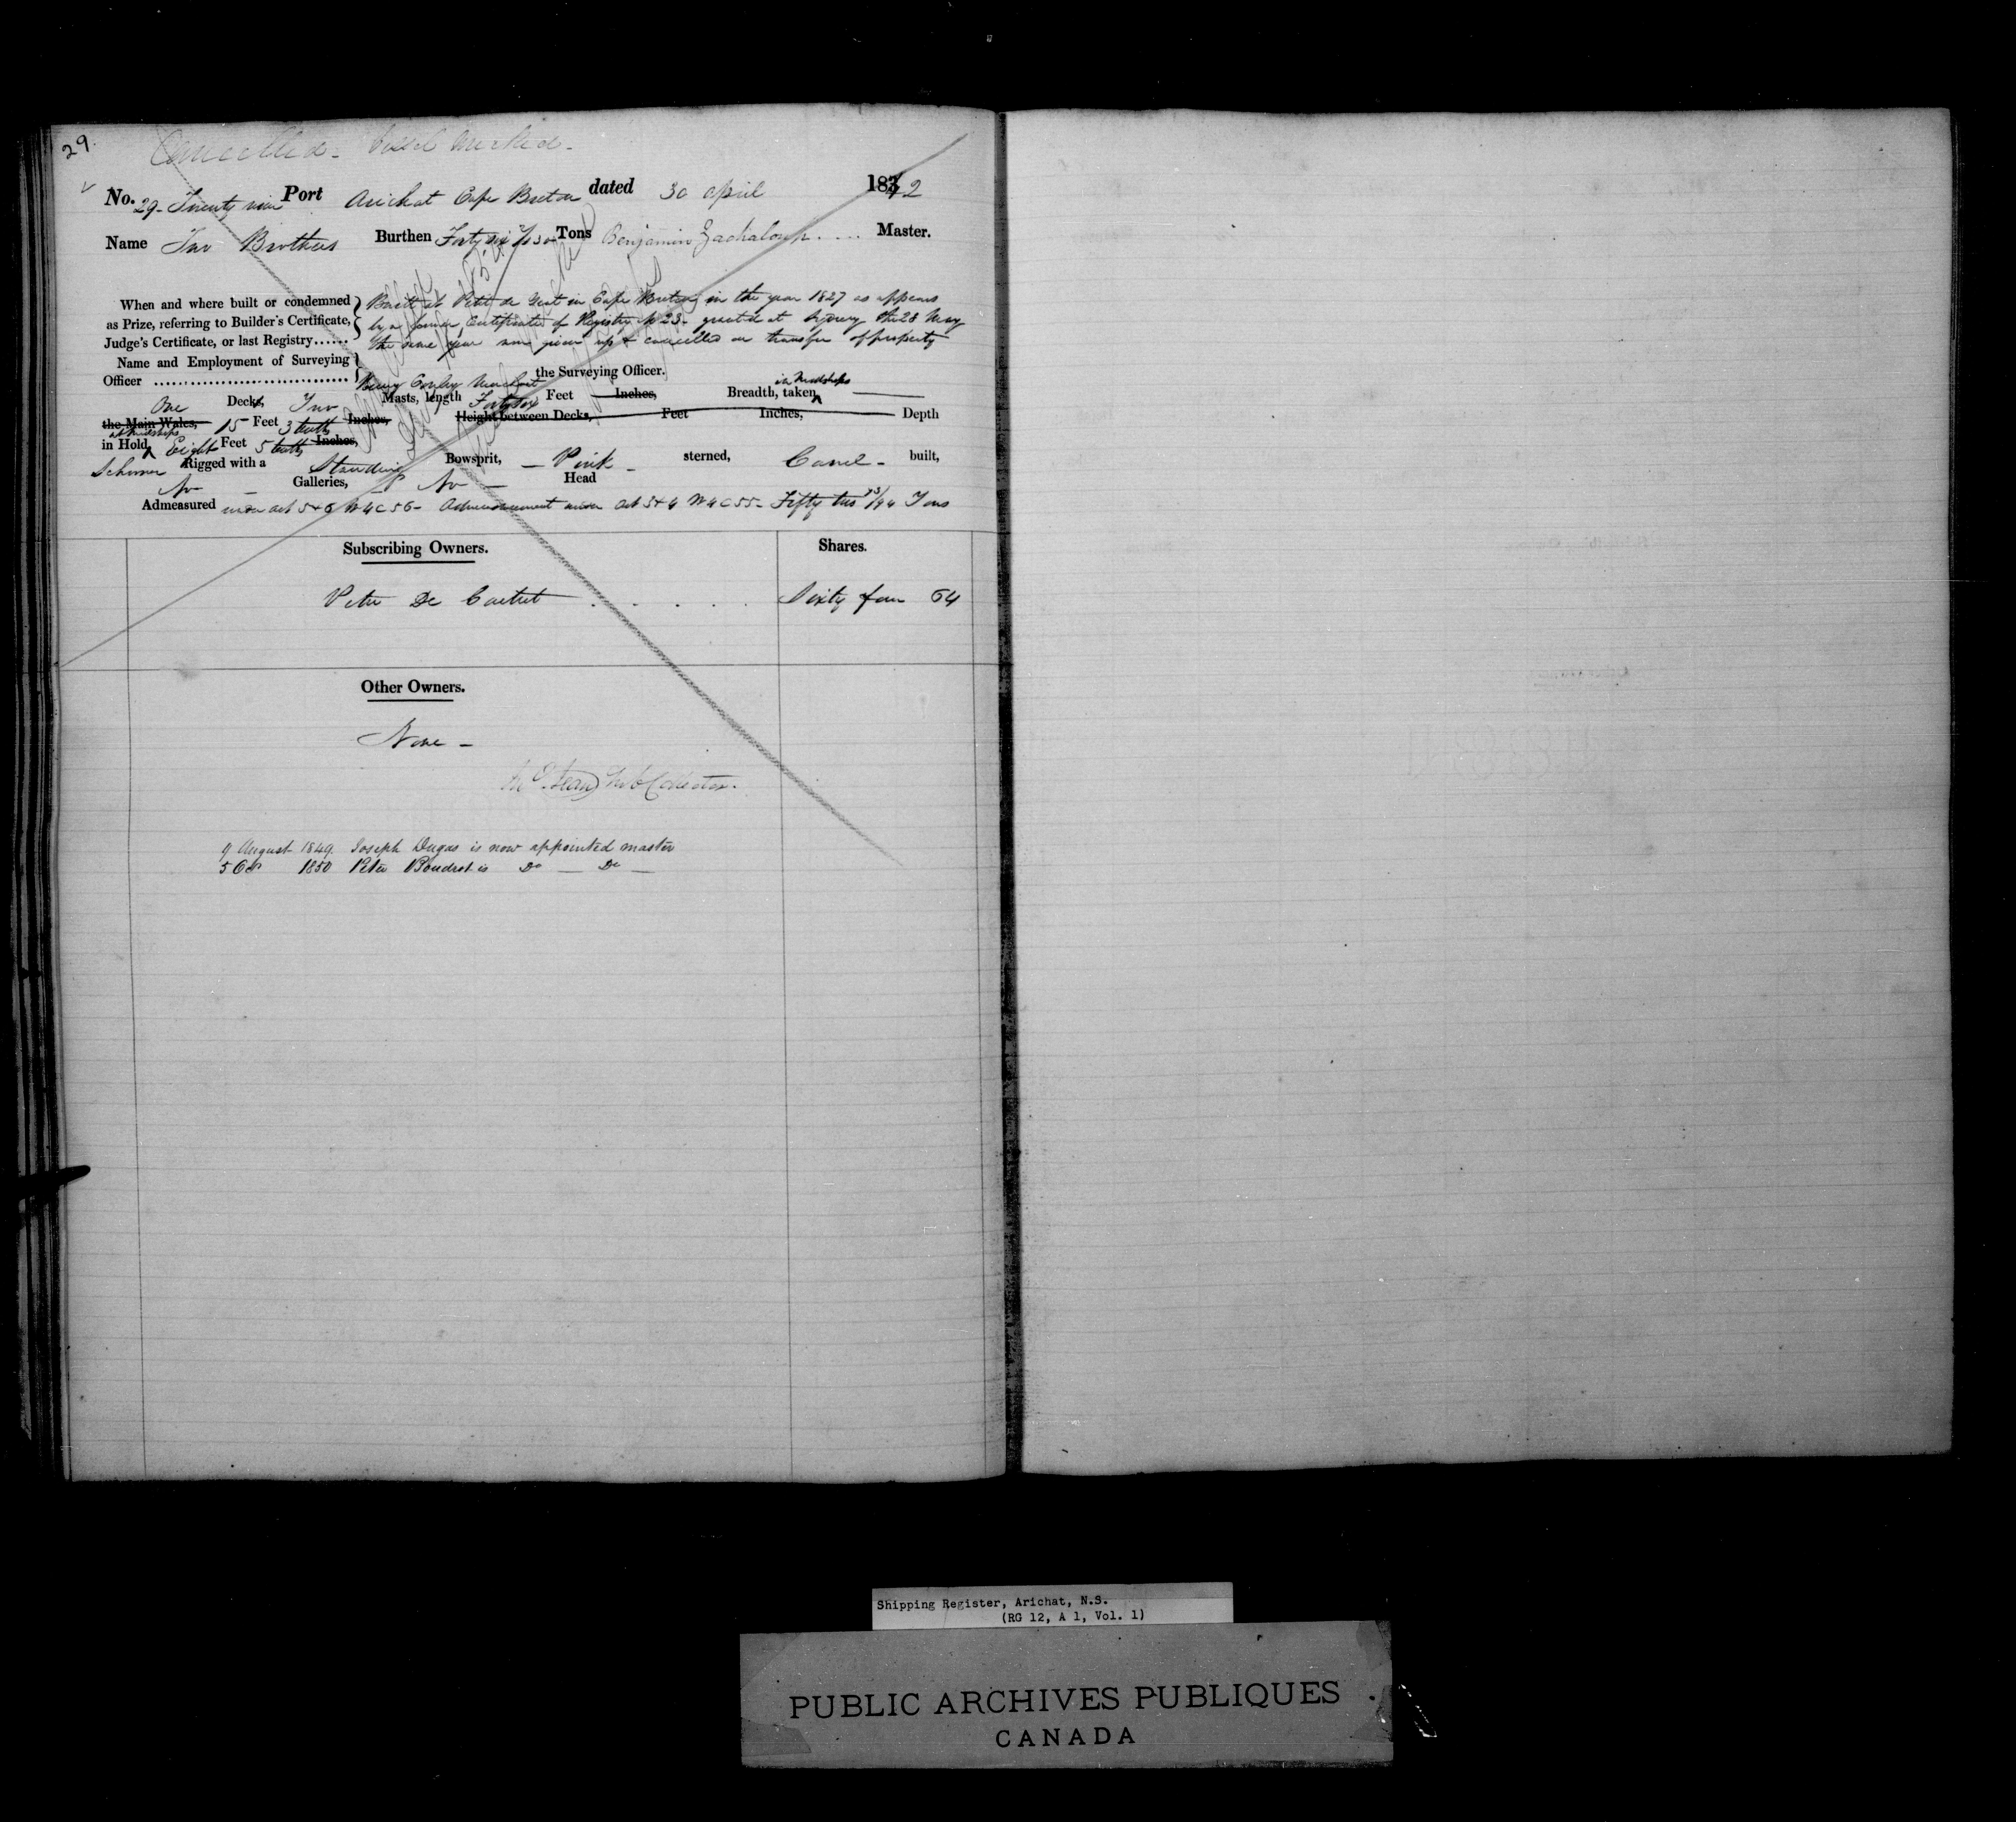 29.
Cancelled - Vessel Wrecked -
No. 29 - Twenty nine Port Arichat Cape Breton dated 30 April 1842
Name Two Brothers Burthen Forty six Tons Benjamin .... Master.
When and where built or condemned Built at Petit de Grat in Cape Breton in the year 1827 as appears
as Prize, referring to Builder's Certificate, by a former Certificate of Registry No 23 - granted at Sydney the 28 May
Judge's Certificate, or last Registry...... the same year now given up & cancelled on transfer of property
Name and Employment of Surveying
Officer ................................ Conley the Surveying Officer.
in Midships
One Decks, Two Masts, length Forty six Feet Inches, Breadth, taken
the Main Wales, 15 Feet 3 tenths Inches, Height between Decks, Feet Inches, Depth
at Midships
in Hold, Eight Feet 5 tenths Inches,
Schooner Rigged with a Standing Bowsprit, - Pink - sterned, Carvel - built,
No - Galleries, - No - Head
Admeasured under act 5 & 6 W 4 C 56 - Admeasurement under act 3 & 4 W 4 C 55 - Fifty two /94 Tons
Subscribing Owners. Shares.
Peter De Carteret . . . . . Sixty four 64
Other Owners.
None -
Sub Collector.
9 August 1849 Joseph Dugas is now appointed master
5 Oct 1850 Peter Boudrot is Do — Do —
Shipping Register, Arichat, N.S.
(RG 12, A 1, Vol. 1)
PUBLIC ARCHIVES PUBLIQUES
CANADA